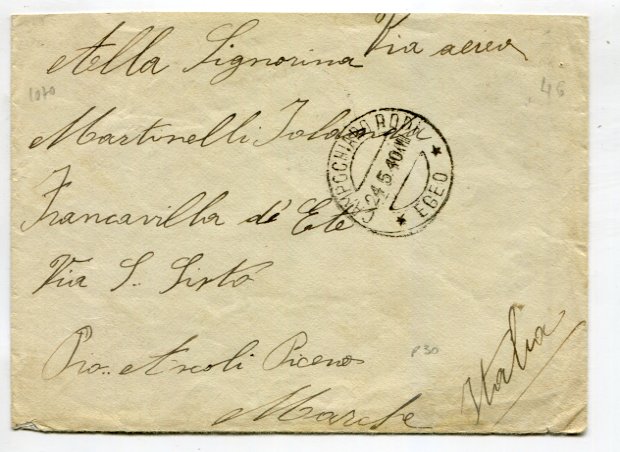 Alla Signorina Via aerea
1070
48
Martinelli Iolanda
CAMPOCHIARO RODI
24.5.40.XVIII
* EGEO *
Francavilla d'Ete
Via S. Sisto
Pro.. Ascoli Piceno
P30
Marche
Italia